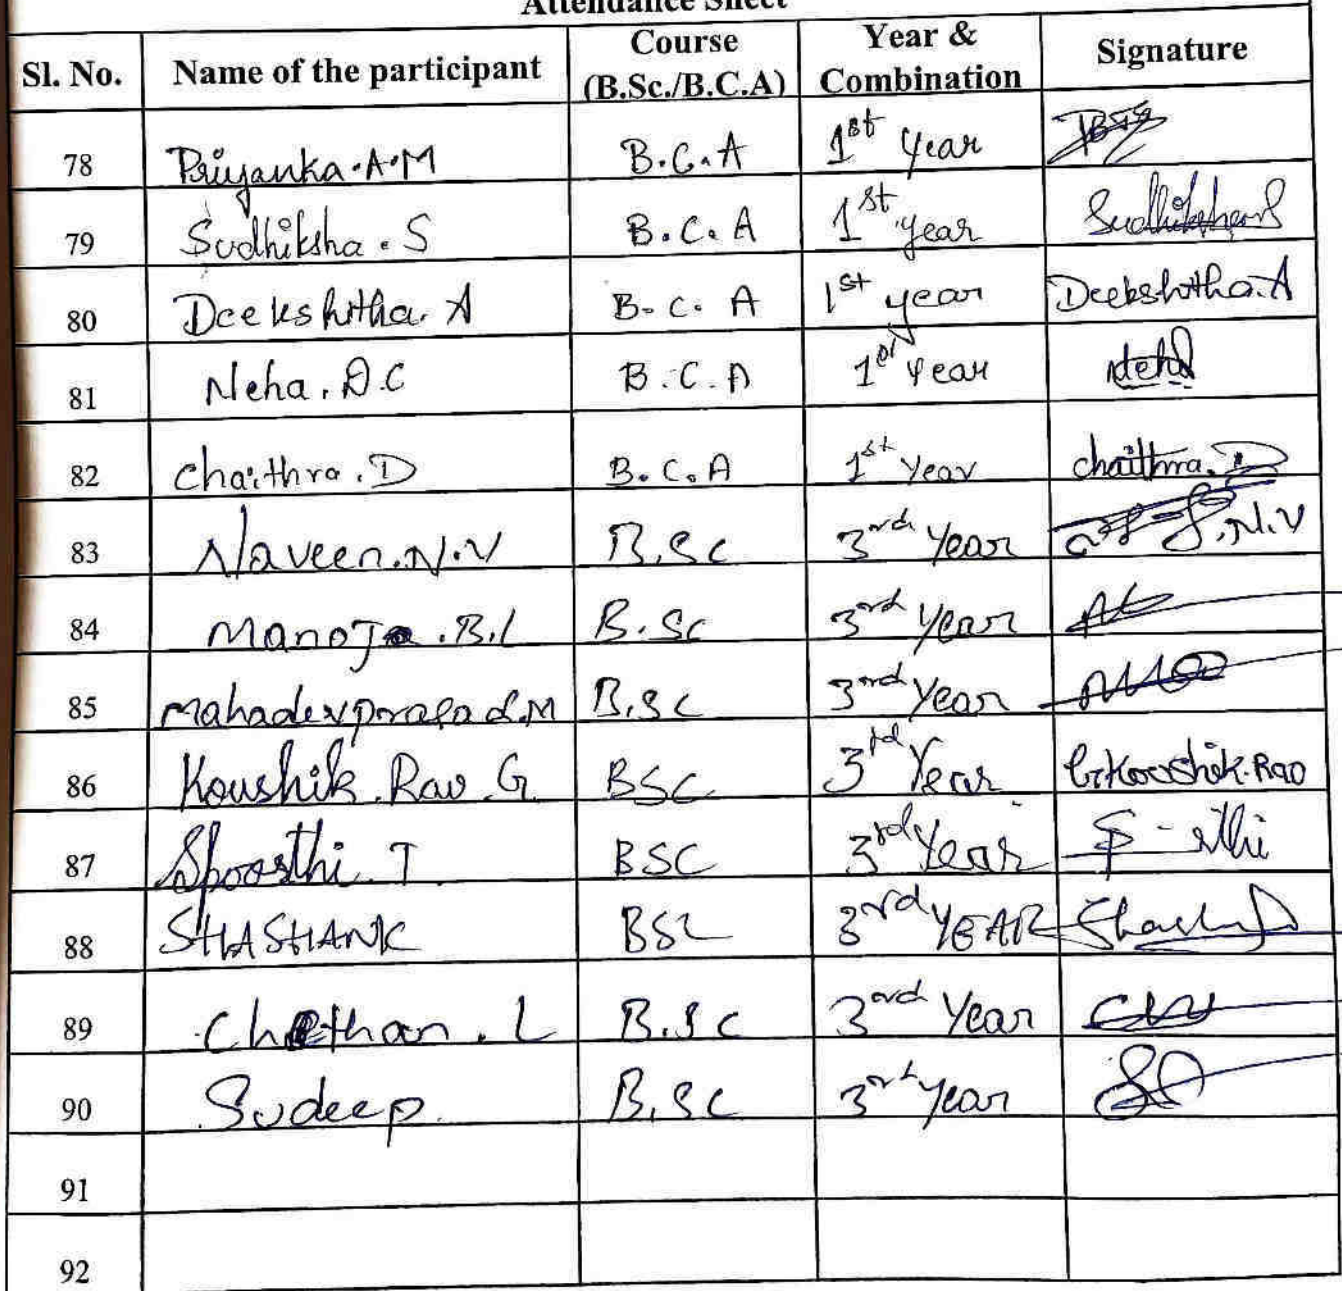 Attendance Sheet
Sl. No. Name of the participant Course (B.Sc./B.C.A) Year & Combination Signature
78 Priyanka.A.M B.C.A 1st Year
79 Sudhiksha.S B.C.A 1st year Sudhiksha S
80 Deekshitha.A B.C.A 1st year Deekshitha.A
81 Neha.D.C B.C.A 1st Year Neha
82 Chaithra.D B.C.A 1st Year chaithra.D
83 Naveen.N.V B.Sc 3rd Year N.V
84 Manoj.B.L B.Sc 3rd Year
85 Mahadevprasad.M B.Sc 3rd Year
86 Koushik.Rao.G BSC 3rd Year G.Koushik.Rao
87 Spoorthi.T BSC 3rd Year
88 SHASHANK BSC 3rd YEAR
89 Chethan.L B.Sc 3rd Year
90 Sudeep B.Sc 3rd Year
91
92